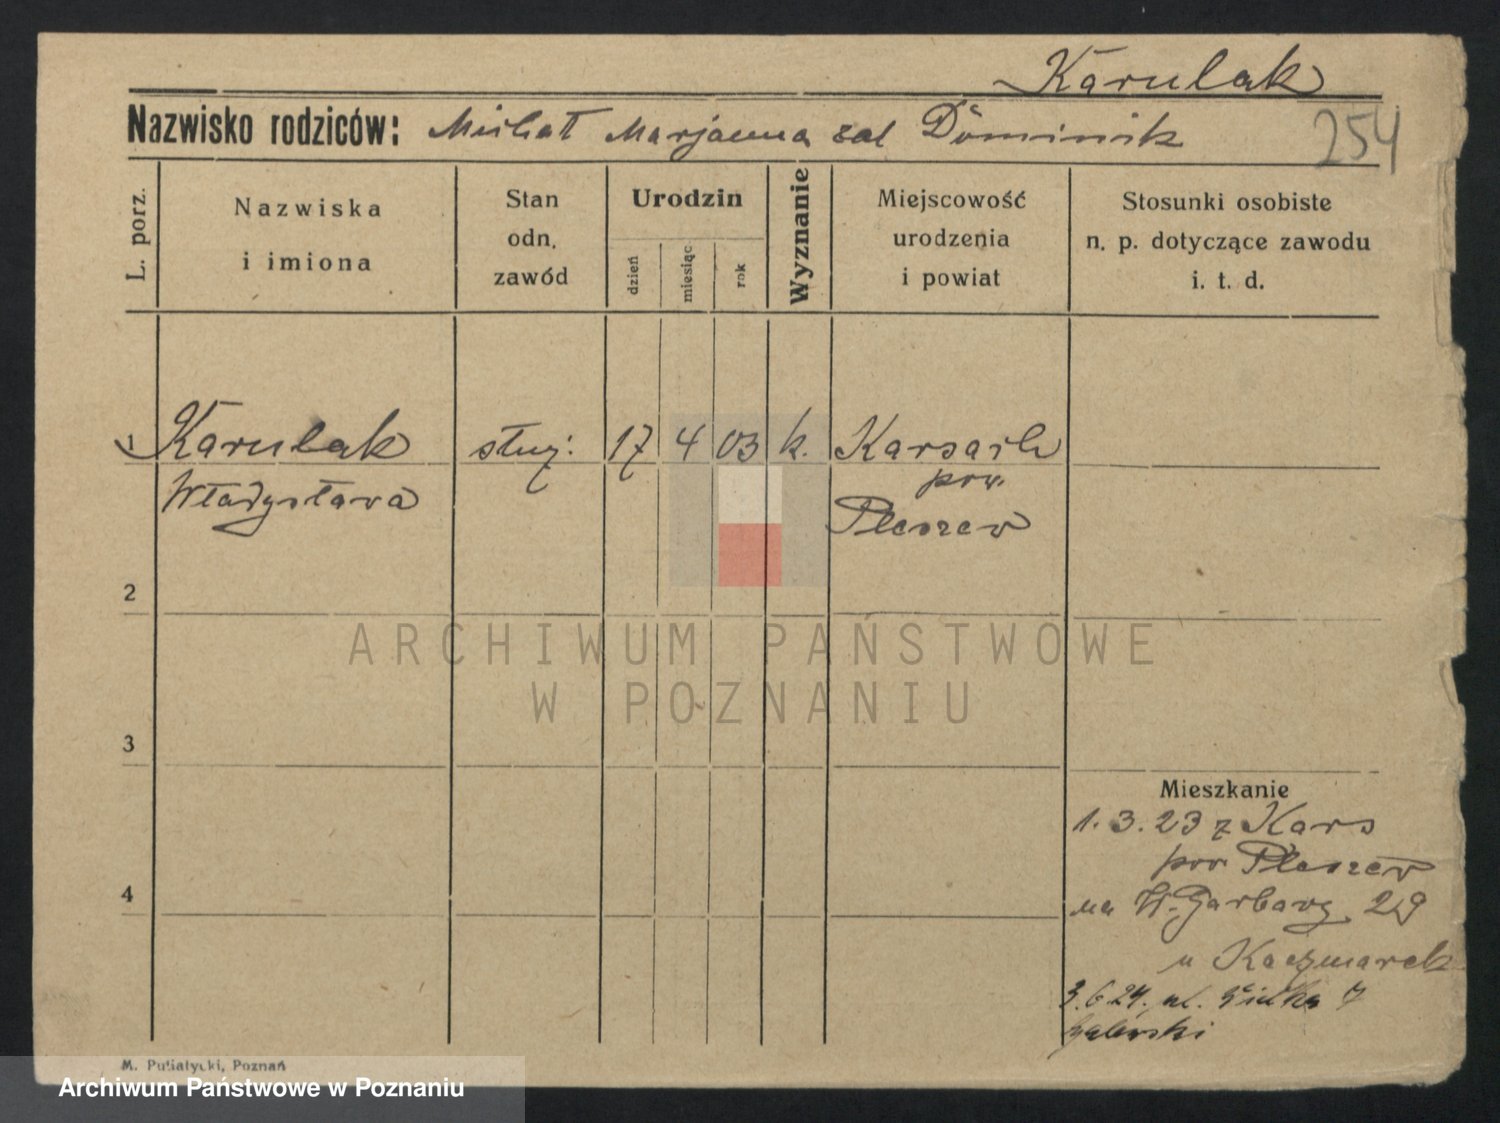 Karulak
Nazwisko rodziców: Michał Marjanna zd Dominik
254
L. porz.
Nazwiska
i imiona
Stan
odn.
zawód
Urodzin
dzień
miesiąc
rok
Wyznanie
Miejscowość
urodzenia
i powiat
Stosunki osobiste
n. p. dotyczące zawodu
i. t. d.
1 Karulak służ. 17 4 03 k.
Władysława
pow.
Pleszew
2
ARCHIWUM PAŃSTWOWE
W POZNANIU
3
Mieszkanie
1. 3. 23 z Kars
pow. Pleszew
4
na W. Garbary 29
u Kaczmarek
3.6.24. ul. 7
M. Putiatycki, Poznań
Archiwum Państwowe w Poznaniu